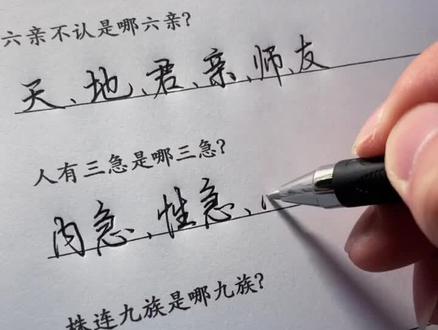 六亲不认是哪六亲?
天、地、君、亲、师、友
人有三急是哪三急?
内急、性急、
株连九族是哪九族?